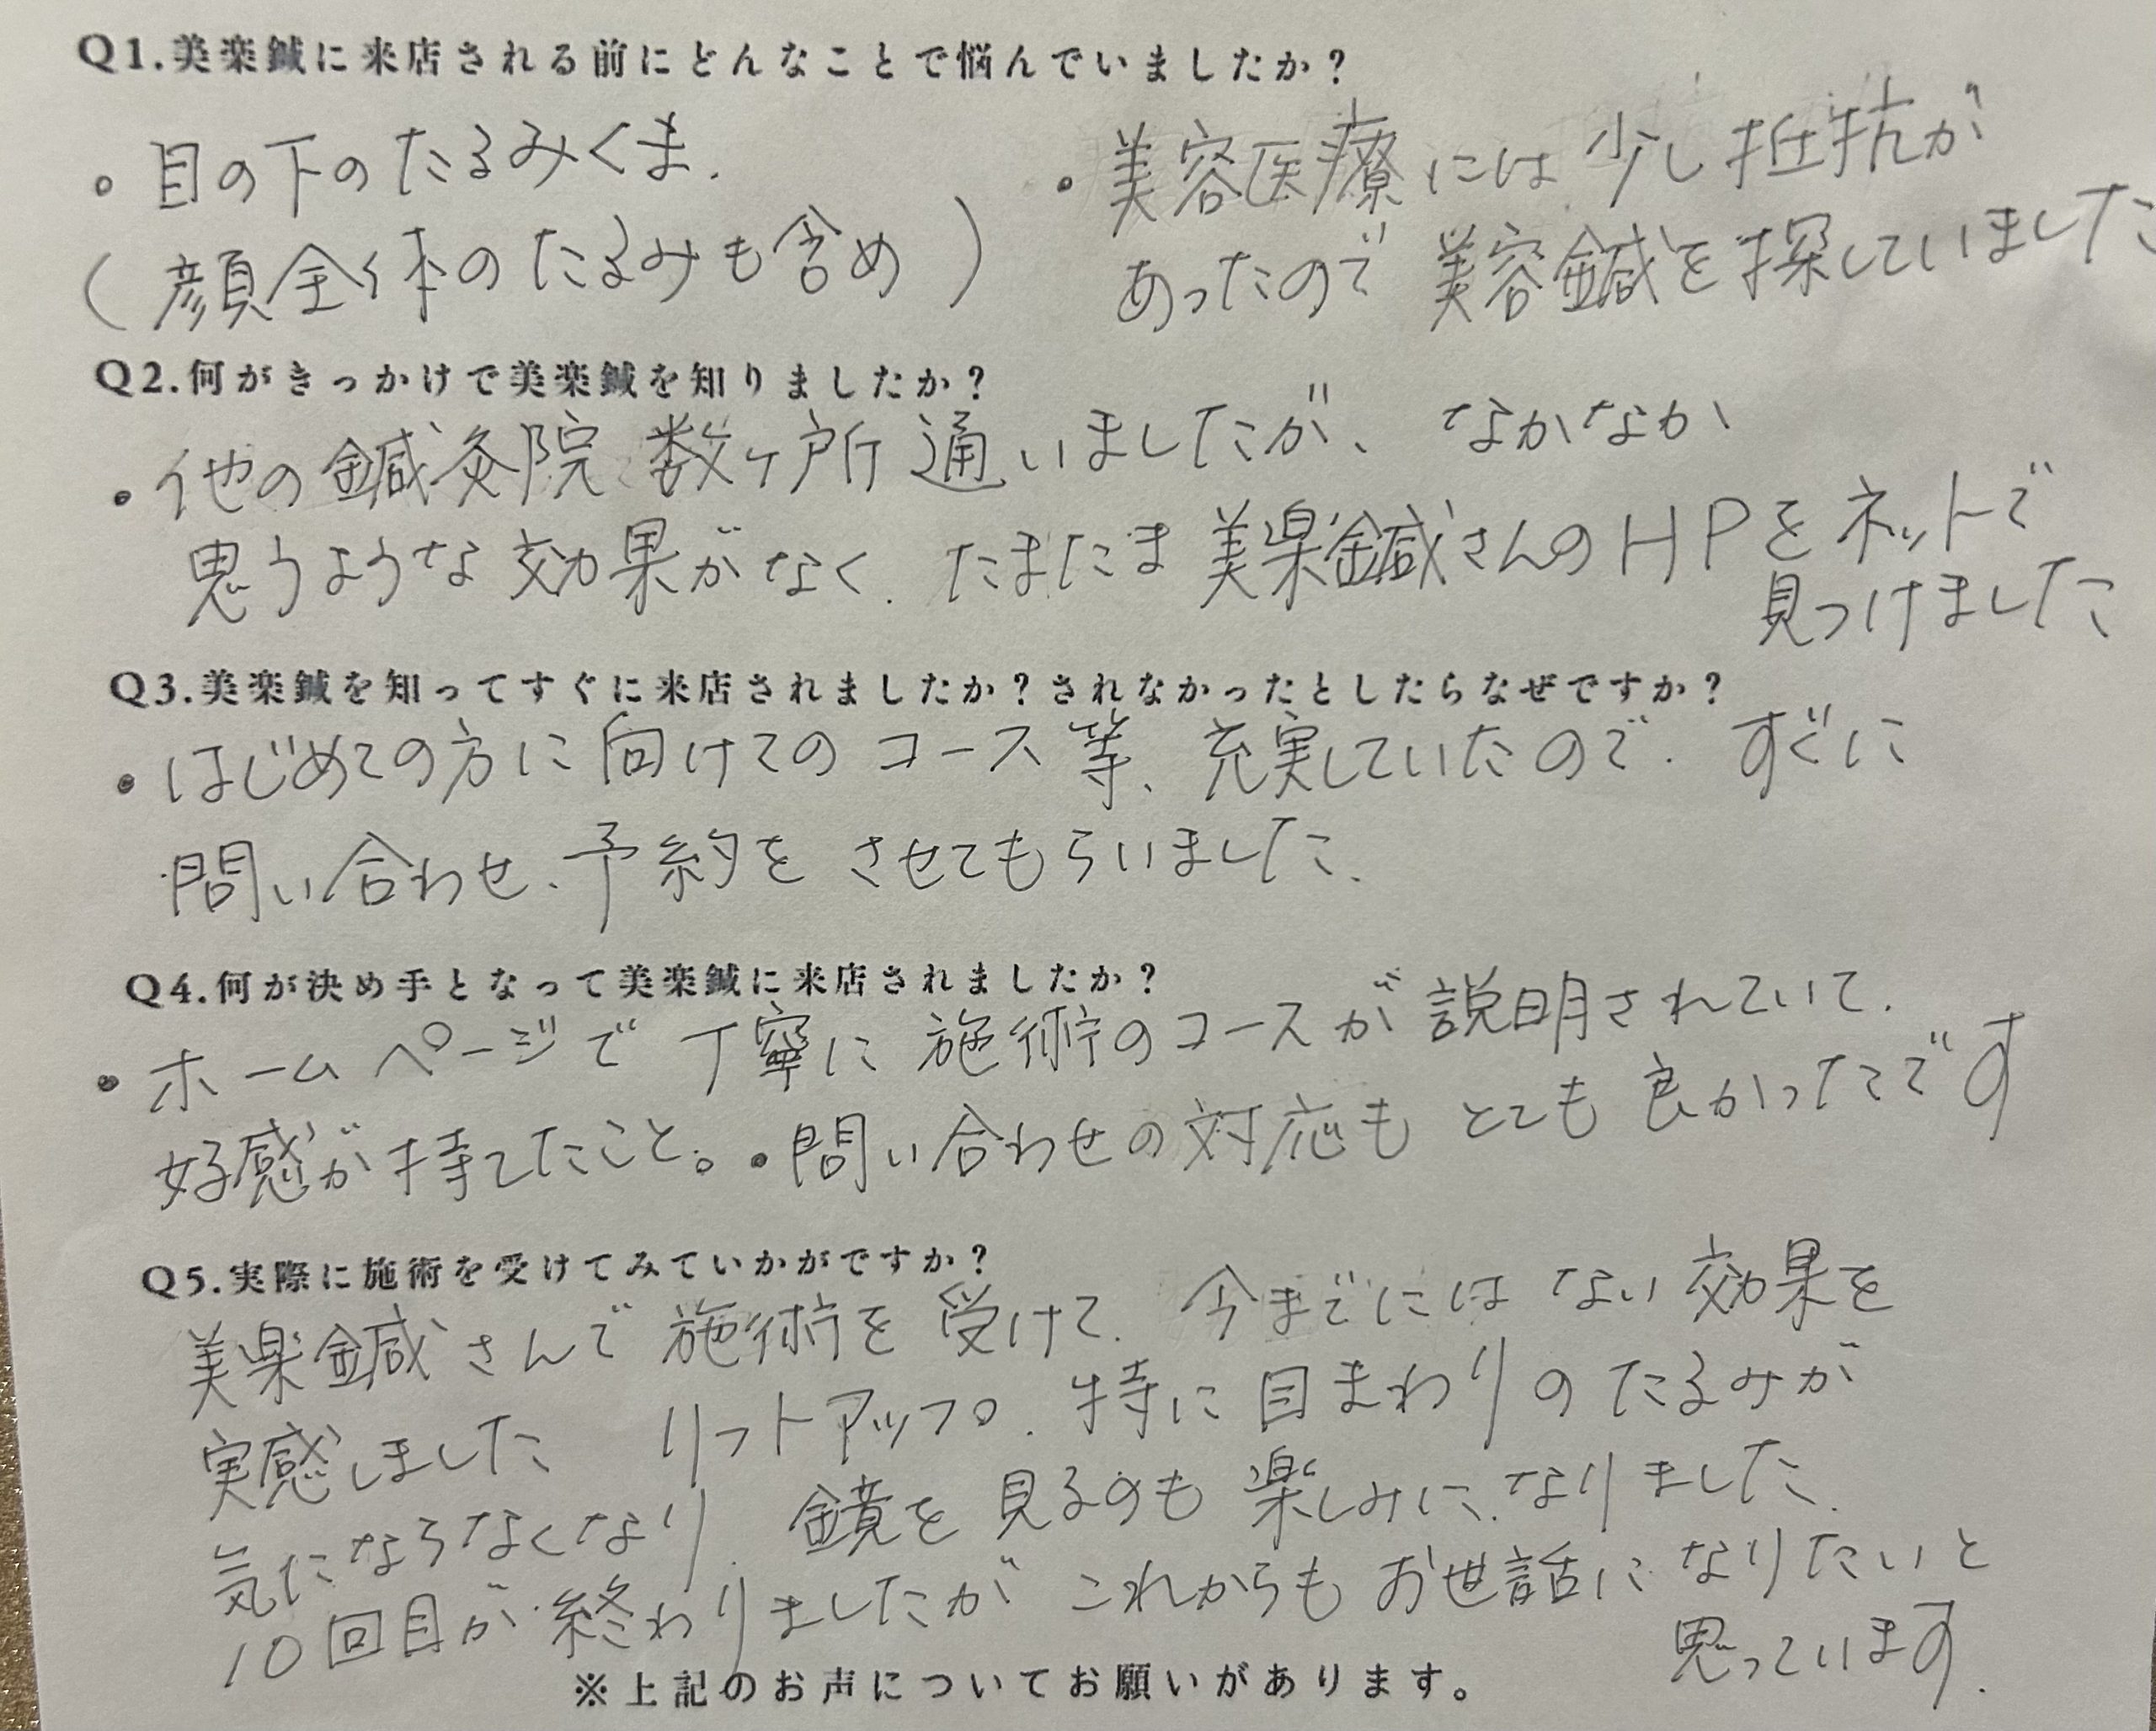 Q1.美楽鍼に来店される前にどんなことで悩んでいましたか？
・目の下のたるみくま.
(顔全体のたるみも含め)
・美容医療には少し抵抗が
あったので美容鍼を探していました
Q2.何がきっかけで美楽鍼を知りましたか？
・他の鍼灸院 数ヶ所 通いましたが、なかなか
思うような効果がなく、たまたま美楽鍼さんのHPをネットで
見つけました
Q3.美楽鍼を知ってすぐに来店されましたか？されなかったとしたらなぜですか？
・はじめての方に向けてのコース等、充実していたので、すぐに
問い合わせ、予約をさせてもらいました.
Q4.何が決め手となって美楽鍼に来店されましたか？
・ホームページで丁寧に施術のコースが説明されていて.
好感が持てたこと。・問い合わせの対応もとても良かったてです
Q5.実際に施術を受けてみていかがですか？
美楽鍼さんで施術を受けて、今までにはない効果を
実感しました リフトアップ、特に目まわりのたるみが
気にならなくなり、鏡を見るのも楽しみになりました.
10回目が終わりましたがこれからもお世話になりたいと
思っています.
※上記のお声についてお願いがあります。